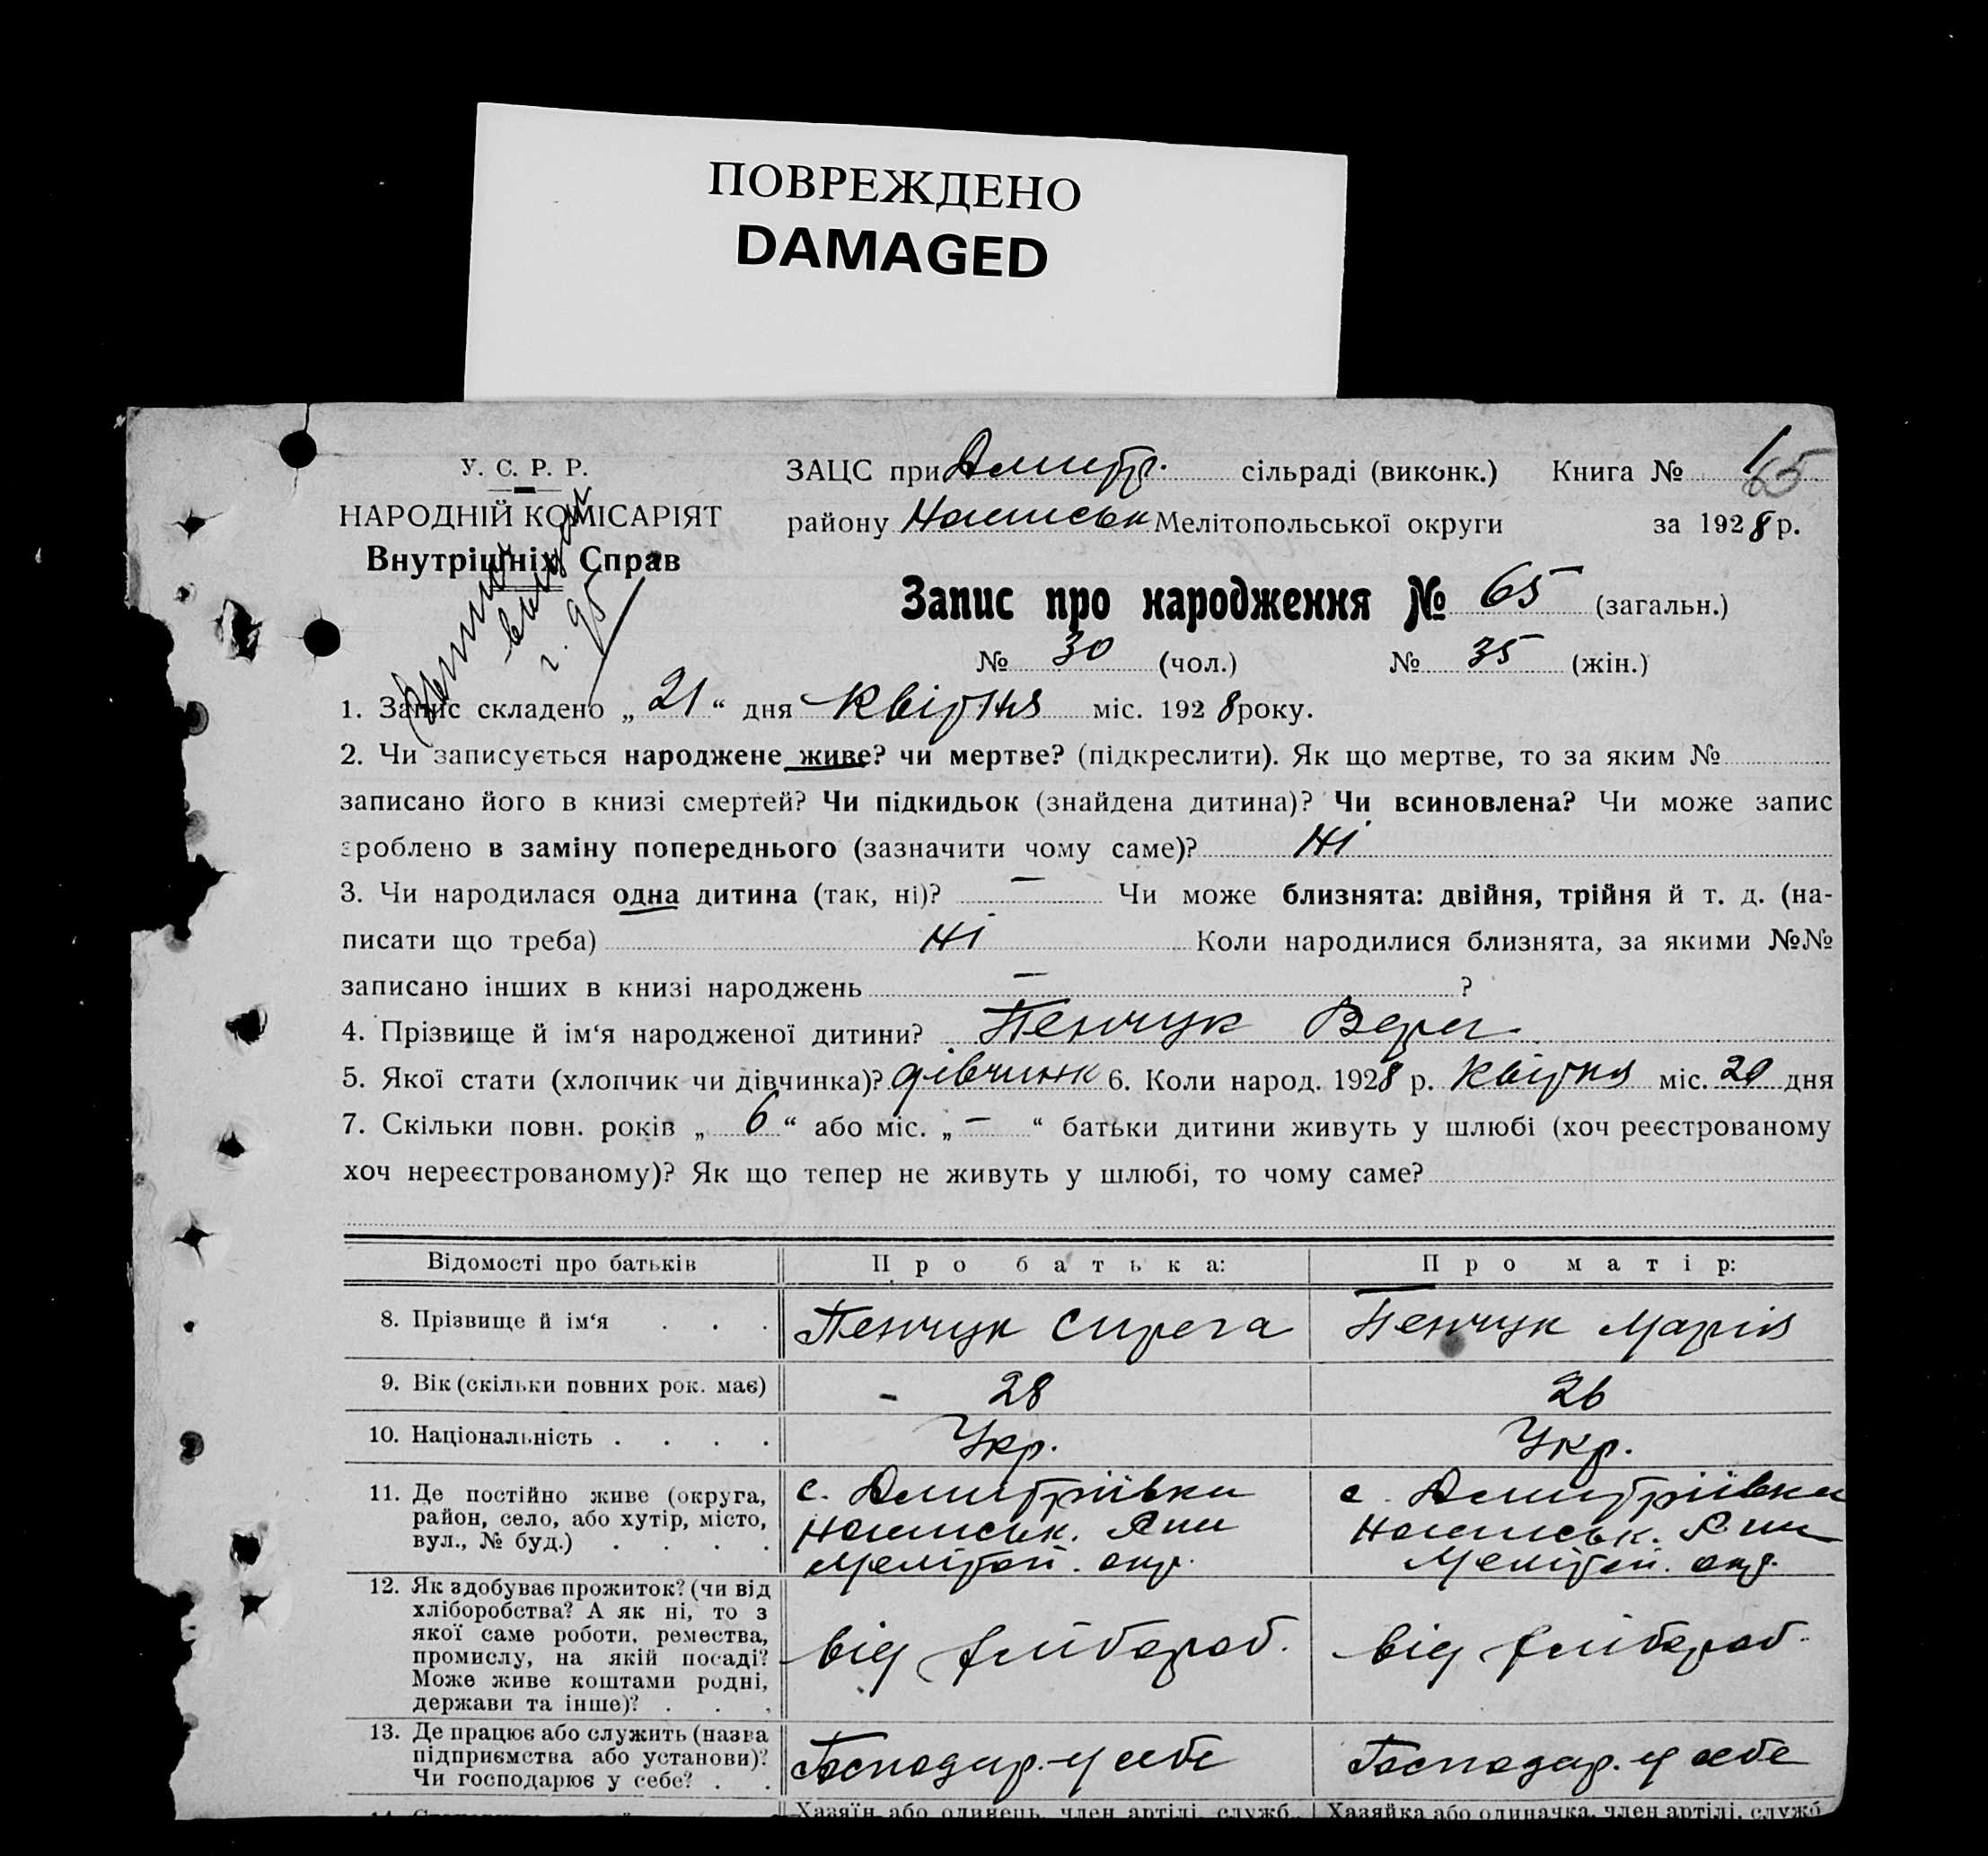 ПОВРЕЖДЕНО
DAMAGED
У. С. Р. Р.
НАРОДНІЙ КОМІСАРІЯТ
Внутрішніх Справ
ЗАЦС при Дмитр. сільраді (виконк.) Книга № 1
65
району Мелітопольської округи за 1928 р.
Запис про народження № 65 (загальн.)
№ 30 (чол.) № 35 (жін.)
1. Запис складено „ 21 “ дня Квітня міс. 1928 року.
2. Чи записується народжене живе? чи мертве? (підкреслити). Як що мертве, то за яким №
записано його в книзі смертей? Чи підкидьок (знайдена дитина)? Чи всиновлена? Чи може запис
зроблено в заміну попереднього (зазначити чому саме)? Ні
3. Чи народилася одна дитина (так, ні)? — Чи може близнята: двійня, трійня й т. д. (на-
писати що треба) Ні Коли народилися близнята, за якими №№
записано інших в книзі народжень — ?
4. Прізвище й ім‘я народженої дитини? Пенчук Вера
5. Якої стати (хлопчик чи дівчинка)? дівчинк 6. Коли народ. 1928 р. Квітня міс. 20 дня
7. Скільки повн. років „ 6 “ або міс. „ — “ батьки дитини живуть у шлюбі (хоч реєстрованому
хоч нереєстрованому)? Як що тепер не живуть у шлюбі, то чому саме?
Відомості про батьків
Про батька:
Про матір:
8. Прізвище й ім‘я . . .
Пенчук
Пенчук Марія
9. Вік (скільки повних рок. має)
- 28
26
10. Національність . . . .
Укр.
Укр.
11. Де постійно живе (округа,
район, село, або хутір, місто,
вул., № буд.) . . . .
с. Дмитріївки
Мелітоп. окр.
с. Дмитріївки
Мелітоп. окр.
12. Як здобуває прожиток? (чи від
хліборобства? А як ні, то з
якої саме роботи, ремества,
промислу, на якій посаді?
Може живе коштами родні,
держави та інше)? . . .
від хлібороб.
від хлібороб.
13. Де працює або служить (назва
підприємства або установи)?
Чи господарює у себе? . .
Господар. у себе
Господар. у себе
Хазяїн або одинець, член артілі, служб.
Хазяйка або одиначка, член артілі, служб